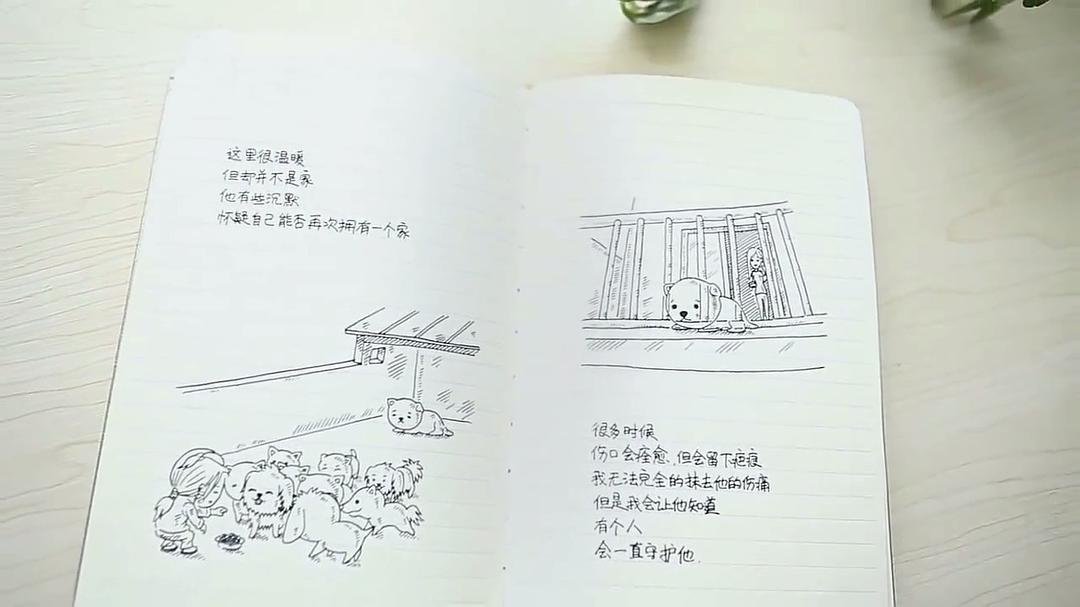 这里很温暖
但却并不是家
他有些沉默
怀疑自己能否再次拥有一个家
很多时候
伤口会痊愈,但会留下疤痕
我无法完全的抹去他的伤痛
但是我会让他知道
有个人
会一直守护他.